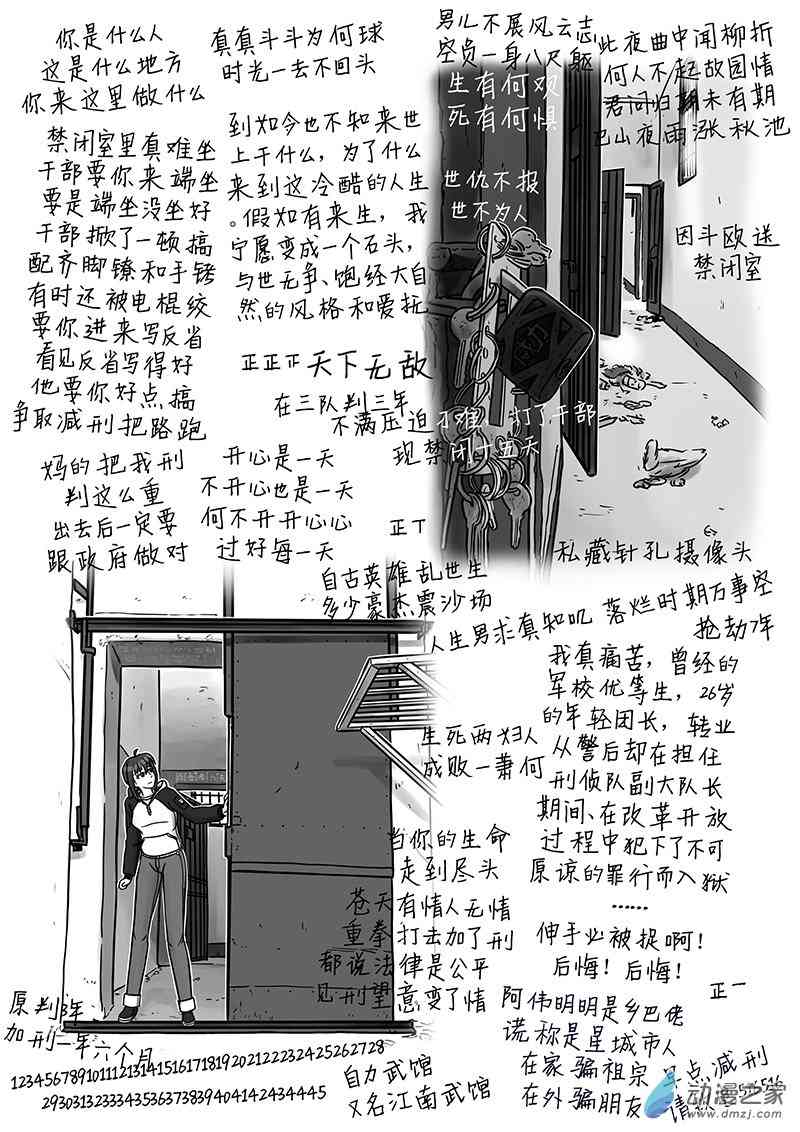 你是什么人
这是什么地方
你来这里做什么
真真斗斗为何球
时光一去不回头
男儿不展风云志
空负一身八尺躯
生有何观
死有何惧
世仇不报
世不为人
此夜曲中闻柳折
何人不起故园情
君问归期未有期
巴山夜雨涨秋池
因斗欧送
禁闭室
禁闭室里真难坐
干部要你来端坐
要是端坐没坐好
干部掀了一顿搞
配齐脚镣和手铐
有时还被电棍绞
要你进来写反省
看见反省写得好
他要你好点搞
争取减刑把路跑
到如今也不知来世
上干什么，为了什么
来到这冷酷的人生
。假如有来生，我
宁愿变成一个石头，
与世无争、饱经大自
然的风格和爱抚
正正正天下无敌
在三队判三年
不满压迫
打了干部
现禁闭十五天
妈的把我刑
判这么重
出去后一定要
跟政府做对
开心是一天
不开心也是一天
何不开开心心
过好每一天
正丅
私藏针孔摄像头
自古英雄乱世生
多少豪杰震沙场
人生男求真知叽
落烂时期万事空
抢劫7年
我真痛苦，曾经的
军校优等生，26岁
的年轻团长，转业
从警后却在担任
刑侦队副大队长
期间、在改革开放
过程中犯下了不可
原谅的罪行而入狱
……
伸手必被捉啊！
后悔！后悔！
生死两妇人
成败一萧何
当你的生命
走到尽头
苍天有情人无情
重拳打去加了刑
都说法律是公平
见刑望意变了情
正一
阿伟明明是乡巴佬
谎称是星城市人
在家骗祖宗
在外骗朋友
早点减刑
原判3年
加刑一年六个月
12345678910111213141516171819202122232425262728
2930313233343536373839404142434445
自力武馆
又名江南武馆
动漫之家
www.dmzj.com